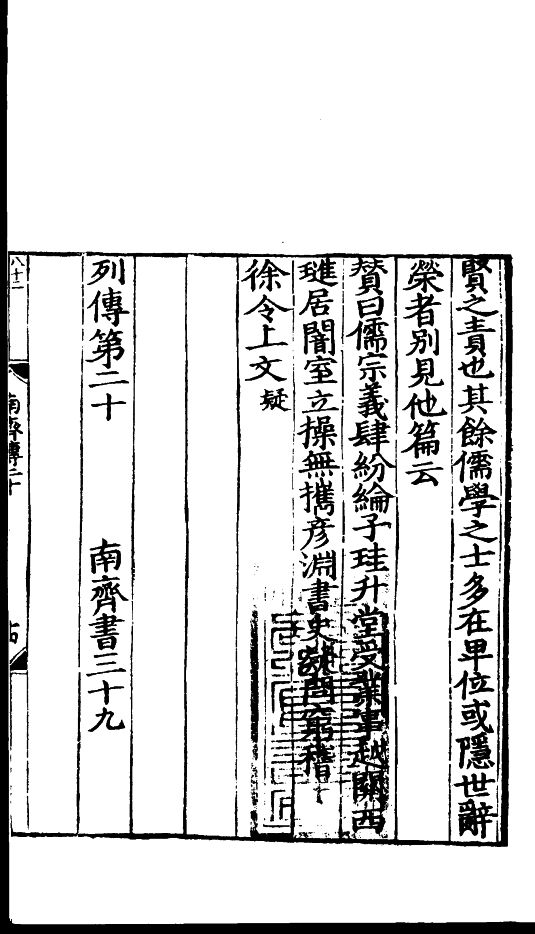 賢之責也其餘儒學之士多在卑位或隱世辭
榮者別見他篇云
贊曰儒宗義肆紛綸子珪升堂受業事越關西
璡居闇室立操無攜彥淵書史疑問窮稽
徐令上文疑
列傳第二十　南齊書三十九
南齊傳二十